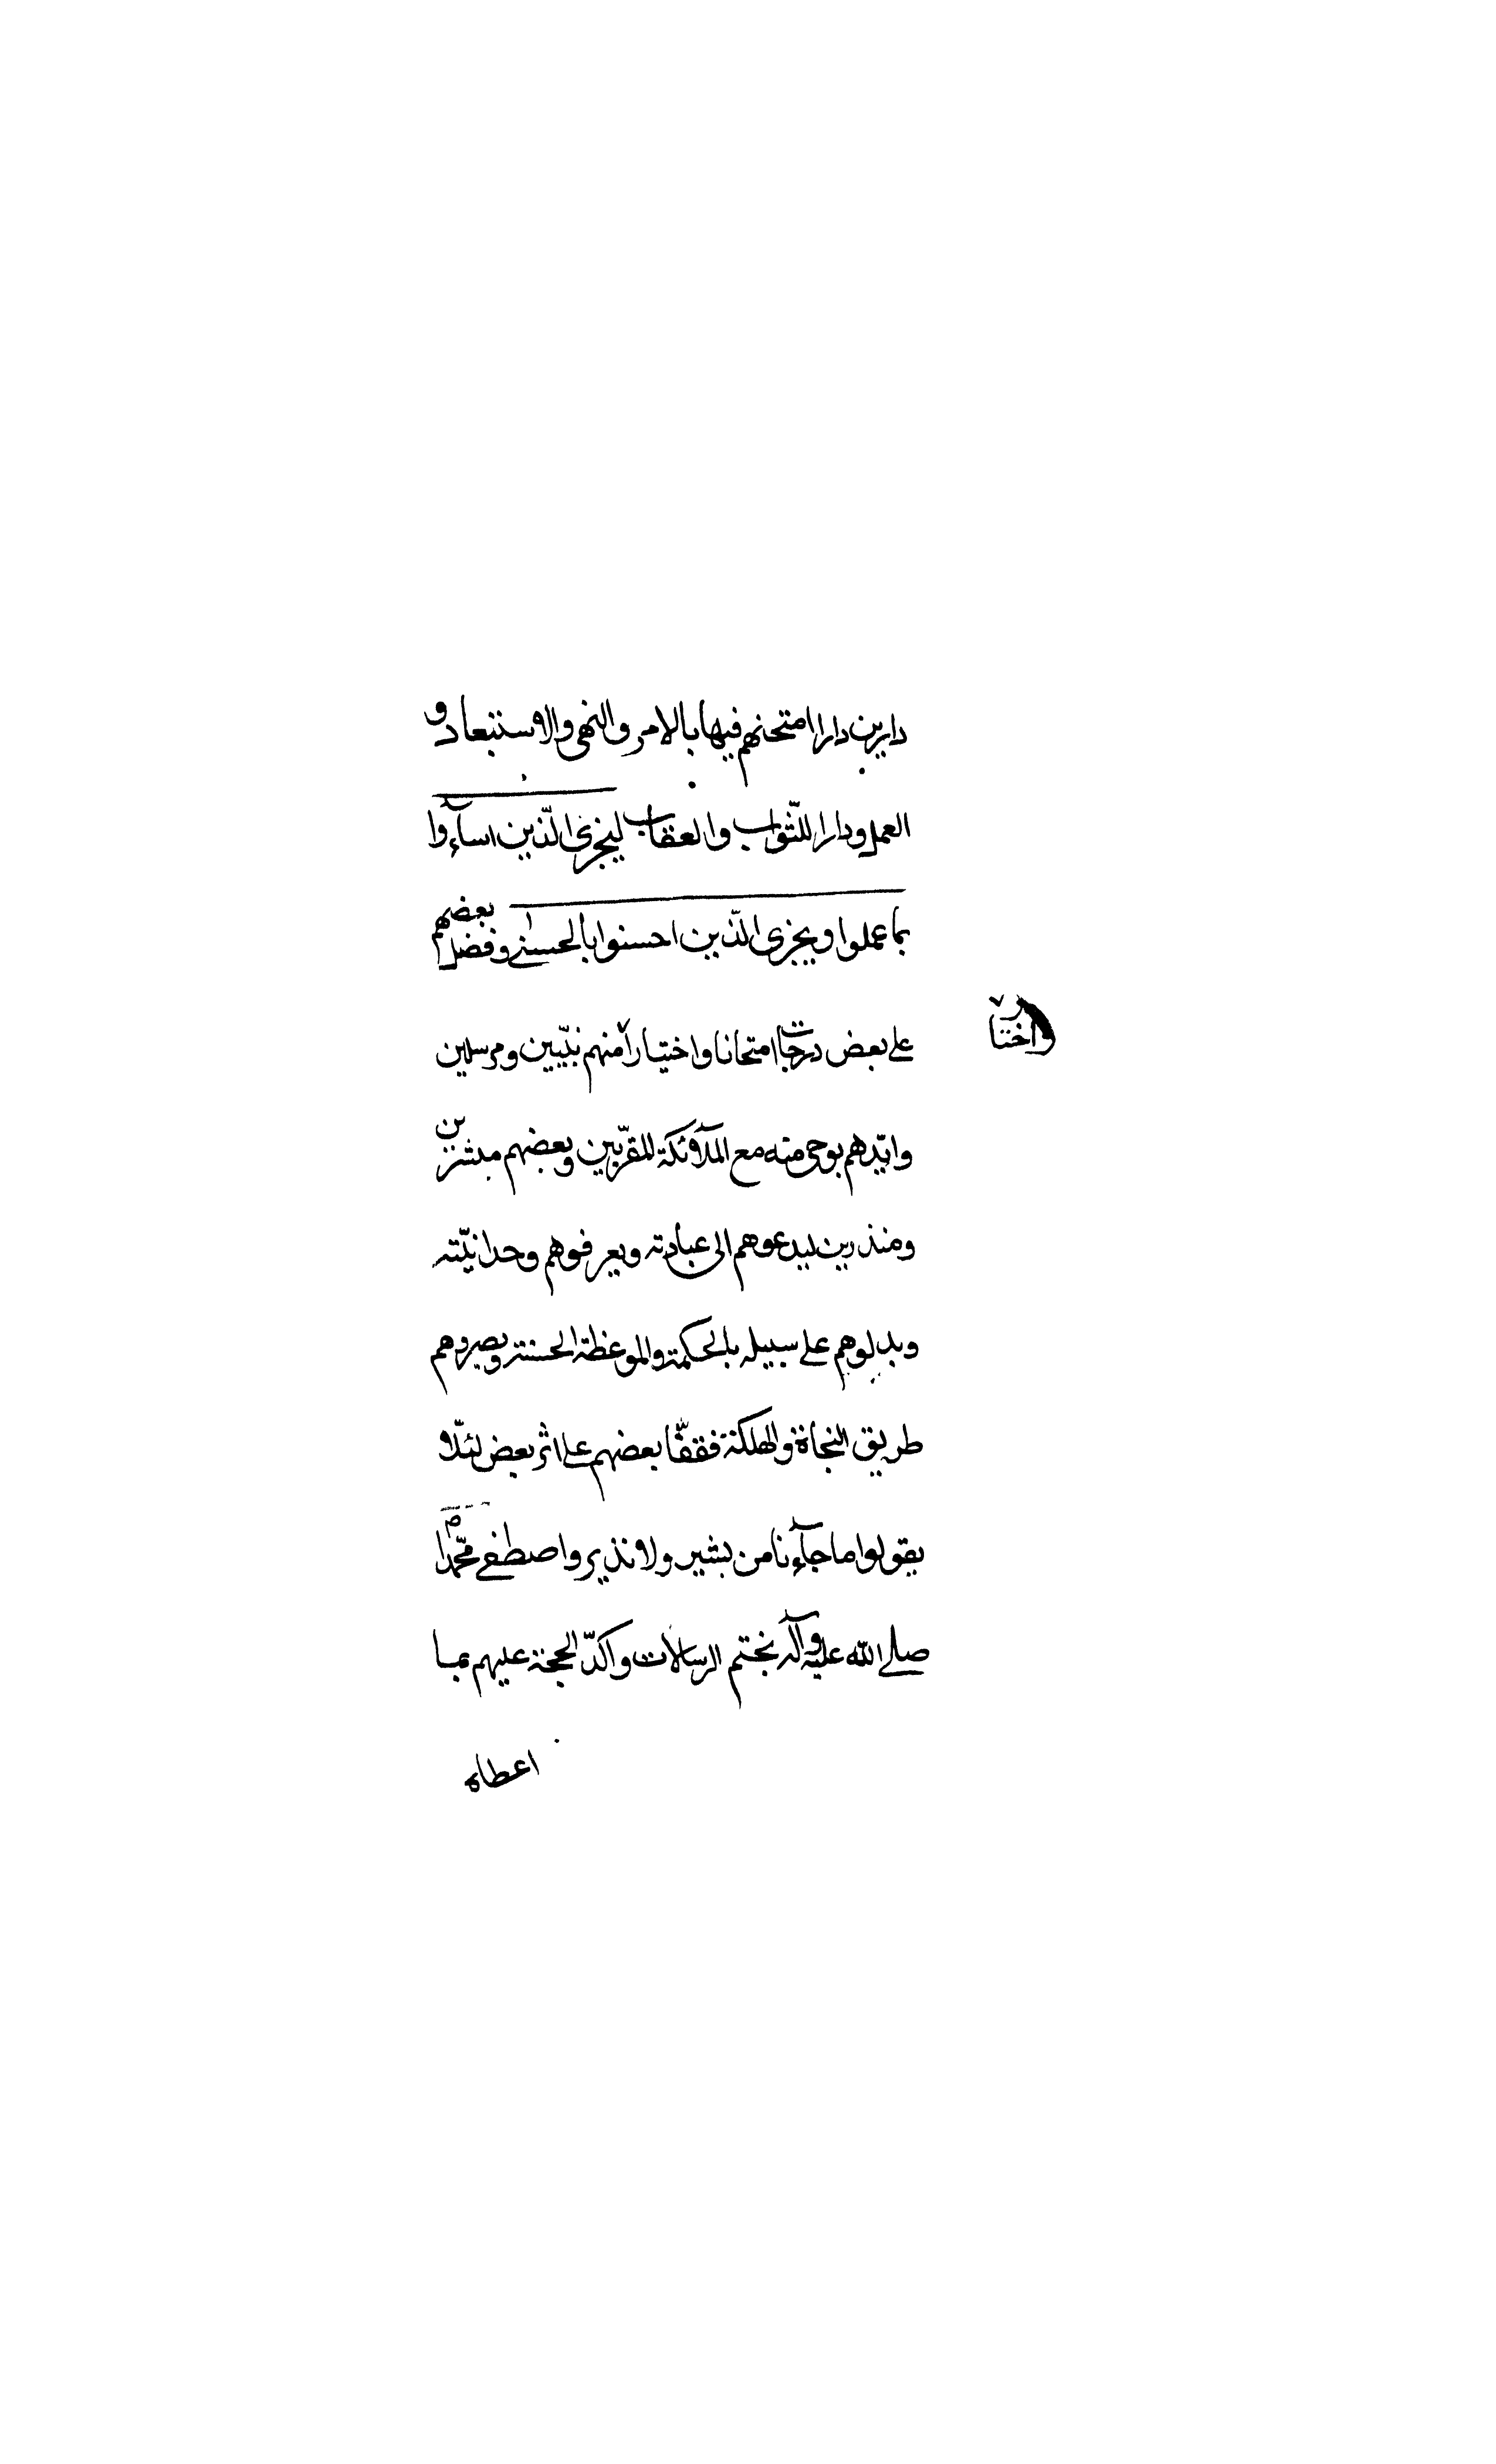 دارين دارا امتحنهم فيها بالامر والنهى والاستبعاد و
العمل ودارا للثّواب والعقاب ليجزى الّذين اسآءوا
بما عملوا ويجزى الّذين احسنوا بالحسنى وفضل بعضهم
على بعض درجات امتحانا واختيارا منهم نبيّين ومرسلين
واختا
وايّدهم بوحى منه مع الملآئكة المقرّبين وبعضهم مبشرين
ومنذرين ليدعوهم الى عبادته ويعرفوهم وحدانيّته
ويدلوهم على سبيله بالحكمة والموعظة الحسنة وبصروهم
طريق النجاة والهلكة فقفّا بعضهم على اثر بعض لئلّا
يقولوا ما جآءنا من بشير ولا نذير واصطفى محمّدا
صلى الله عليه وآله بختم الرسالات واكدّ الحجة عليهم بما
اعطاه